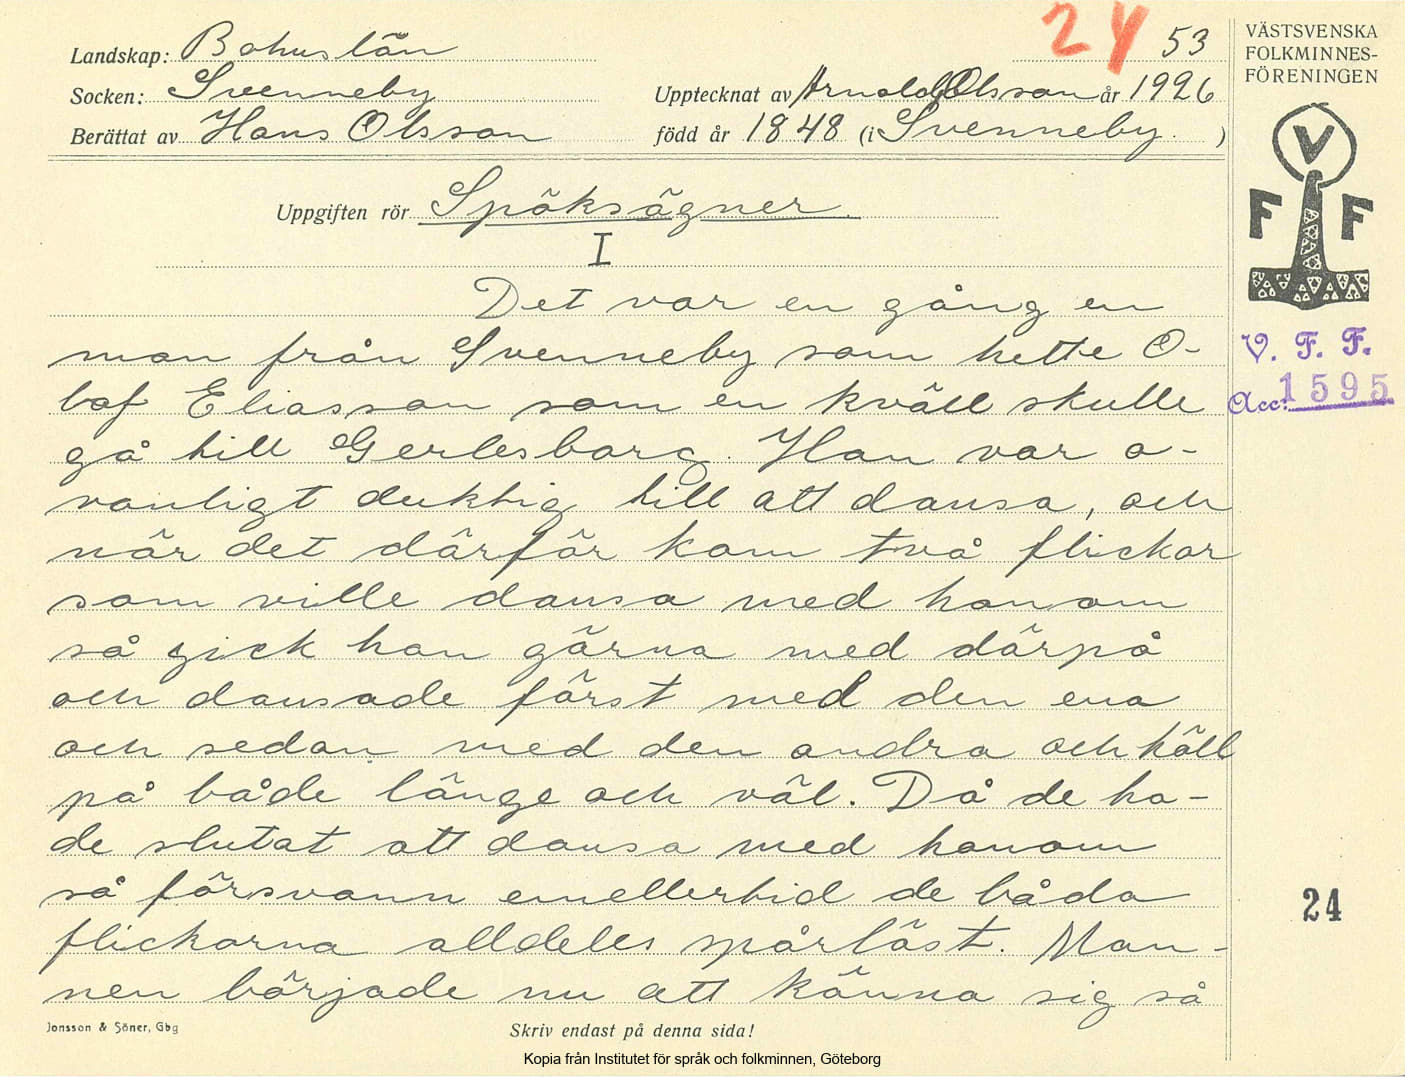 24 53
Landskap: Bohuslän
Socken: Svenneby
Upptecknat av Arnold Olsson år 1926
Berättat av Hans Olsson
född år 1848 (i Svenneby. )
Uppgiften rör Spöksägner.
I
Det var en gång en
man från Svenneby som hette O-
lof Eliasson som en kväll skulle
gå till Gerlesborg. Han var o-
vanligt duktig till att dansa, och
när det därför kom två flickor
som ville dansa med honom
så gick han gärna med därpå
och dansade först med den ena
och sedan med den andra och höll
på både länge och väl. Då de ha-
de slutat att dansa med honom
så försvann emellertid de båda
flickorna alldeles spårlöst. Man-
nen började nu att känna sig så
Jonsson & Söner, Gbg
Skriv endast på denna sida!
Kopia från Institutet för språk och folkminnen, Göteborg
VÄSTSVENSKA
FOLKMINNES-
FÖRENINGEN
V
F F
V. F. F.
Acc: 1595
24